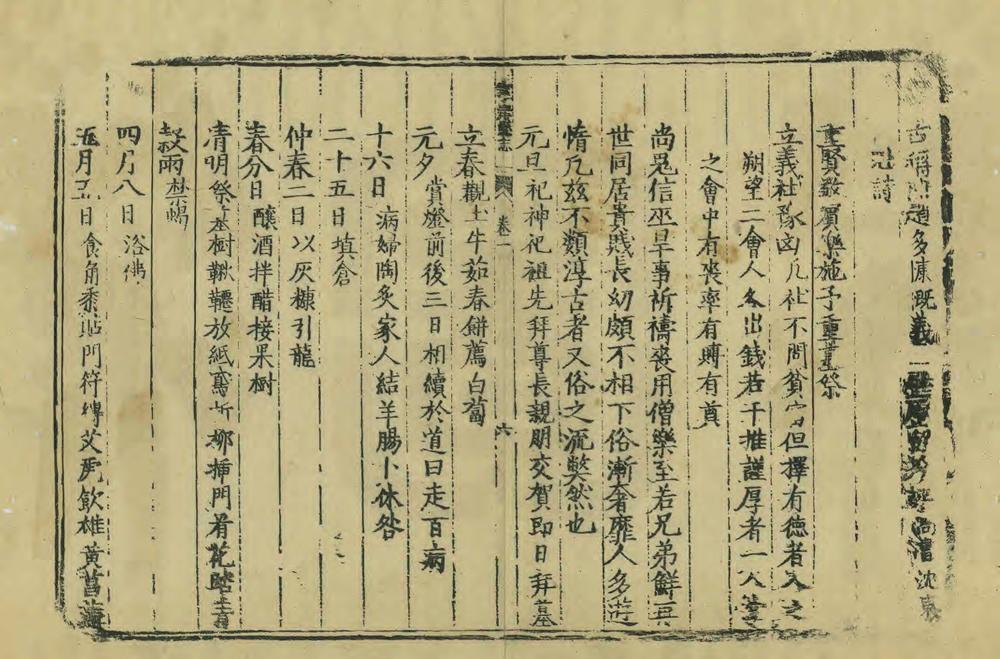 古稱燕趙多慷慨義
忌詩
重賢敬賓樂施予重墓祭
立義社豕㐫凡社不問貧富但擇有德者入之
朔望二會人各出錢若干推謹厚者一人掌
之會中有喪率有賻有奠
尚鬼信巫旱事祈禱喪用僧樂至若兄弟鮮
世同居貴賤長幼頗不相下俗漸奢靡人多遊
惰凡茲不類淳古者又俗之流獘然也
元旦祀神祀祖先拜尊長親朋交賀即日拜墓
卷一
六
立春觀土牛茹春餅薦白蔔
元夕賞燈前後三日相續於道曰走百病
十六日病婦陶灸家人結羊腸卜休咎
二十五日填倉
仲春二日以灰糠引龍
春分日釀酒拌醋接果樹
清明祭墓樹鞦韆放紙鳶折柳揷門屑花踏青
穀雨禁蝎
四月八日浴佛
五月五日食角黍貼門符縛艾虎飲雄黃菖蒲